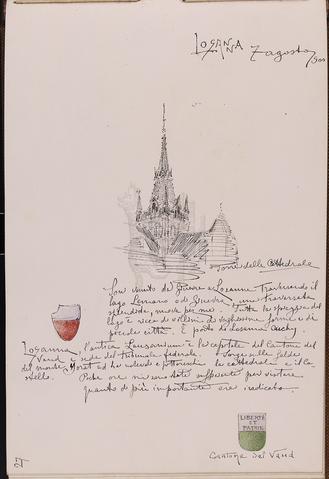 LOSANNA 7 agosto 900
Torre della Cattedrale
Son venuto da Ginevra a Losanna traversando il
lago Lemano o di Ginevra, una traversata
splendida, anche per me. Tutta la spiaggia del
lago è ricca di villini di
piccole città. È porto di Losanna Ouchy.
Losanna, l'antica Lausonium è la capitale del Cantone del
Vaud e sede del tribunale federale. Sorge sulle falde
del monte Jorat ed ha la cattedrale e il Ca-
stello. Poche ore mi sono state sufficienti per visitare
quanto di più importante era indicato.
LIBERTÉ
ET
PATRIE
Cantone del Vaud